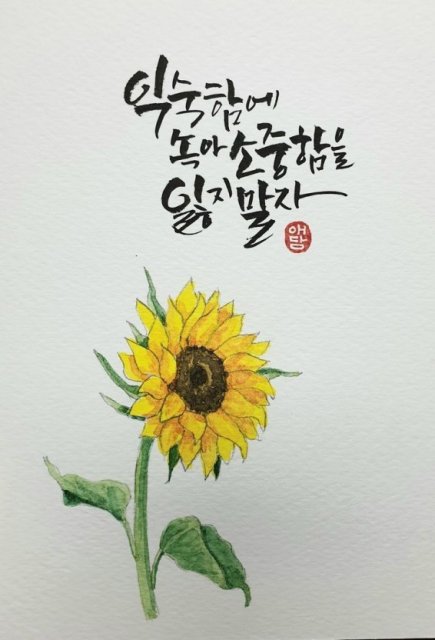 익숙함에
녹아 소중함을
잃지 말자
애담